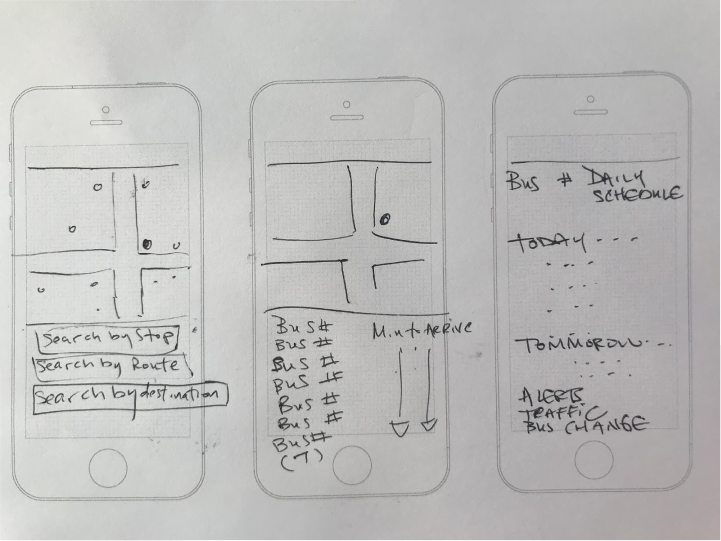 Search by Stop
Search by Route
Search by destination
Bus #
Bus #
Bus #
Bus #
Bus #
Bus #
Bus #
(7)
Min to ARRIVE
Bus # DAILY
SCHEDULE
TODAY - - -
TOMMOROW - - -
ALERTS
TRAFFIC
BUS CHANGE